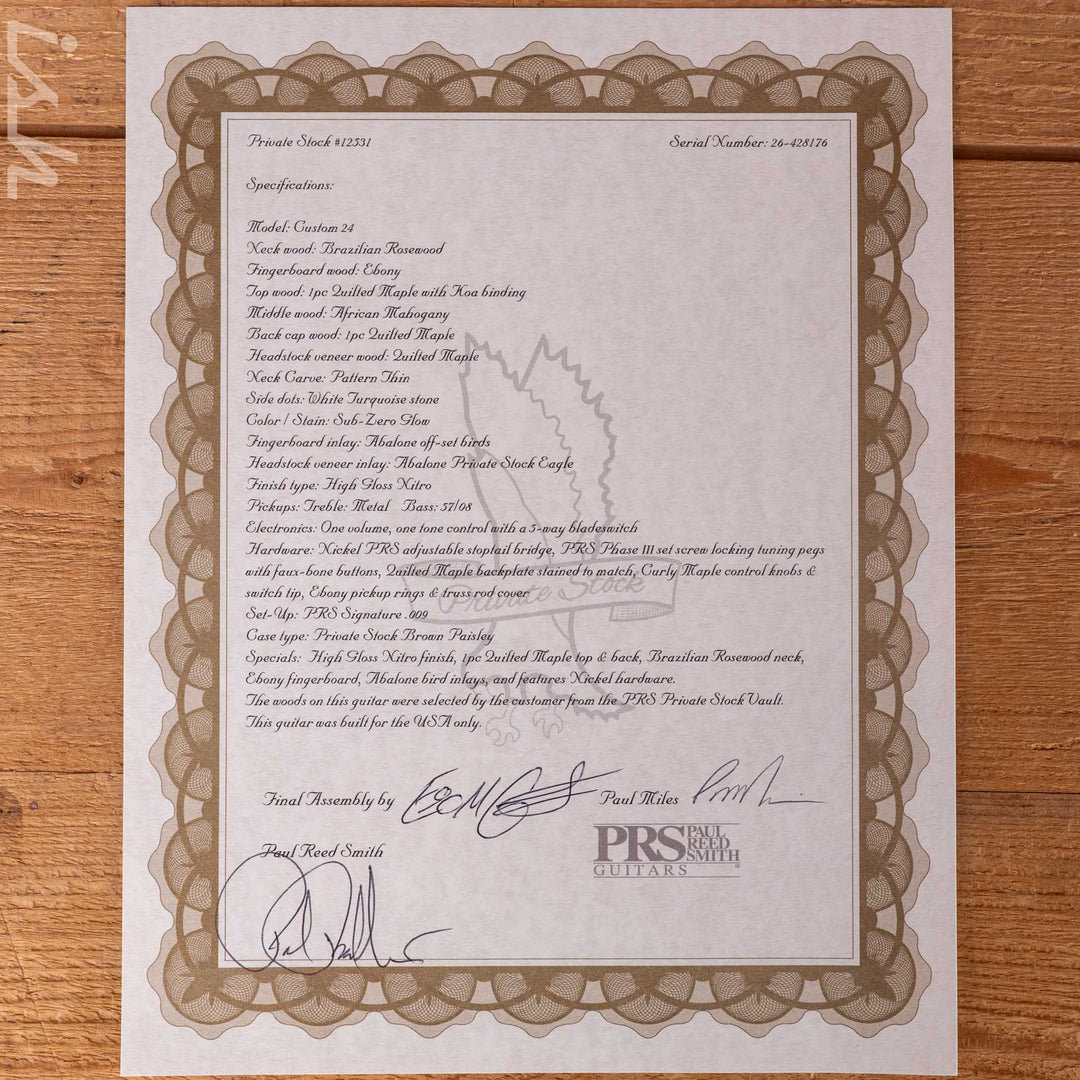 ish
Private Stock #12531
Serial Number: 26-428176
Specifications:
Model: Custom 24
Neck wood: Brazilian Rosewood
Fingerboard wood: Ebony
Top wood: 1pc Quilted Maple with Koa binding
Middle wood: African Mahogany
Back cap wood: 1pc Quilted Maple
Headstock veneer wood: Quilted Maple
Neck Carve: Pattern Thin
Side dots: White Turquoise stone
Color / Stain: Sub-Zero Glow
Fingerboard inlay: Abalone off-set birds
Headstock veneer inlay: Abalone Private Stock Eagle
Finish type: High Gloss Nitro
Pickups: Treble: Metal Bass: 57/08
Electronics: One volume, one tone control with a 5-way bladeswitch
Hardware: Nickel PRS adjustable stoptail bridge, PRS Phase III set screw locking tuning pegs
with faux-bone buttons, Quilted Maple backplate stained to match, Curly Maple control knobs &
switch tip, Ebony pickup rings & truss rod cover
Private Stock
Set-Up: PRS Signature .009
Case type: Private Stock Brown Paisley
Specials: High Gloss Nitro finish, 1pc Quilted Maple top & back, Brazilian Rosewood neck,
Ebony fingerboard, Abalone bird inlays, and features Nickel hardware.
The woods on this guitar were selected by the customer from the PRS Private Stock Vault.
This guitar was built for the USA only.
Final Assembly by
Paul Miles
Paul Reed Smith
PRS PAUL
REED
SMITH
GUITARS